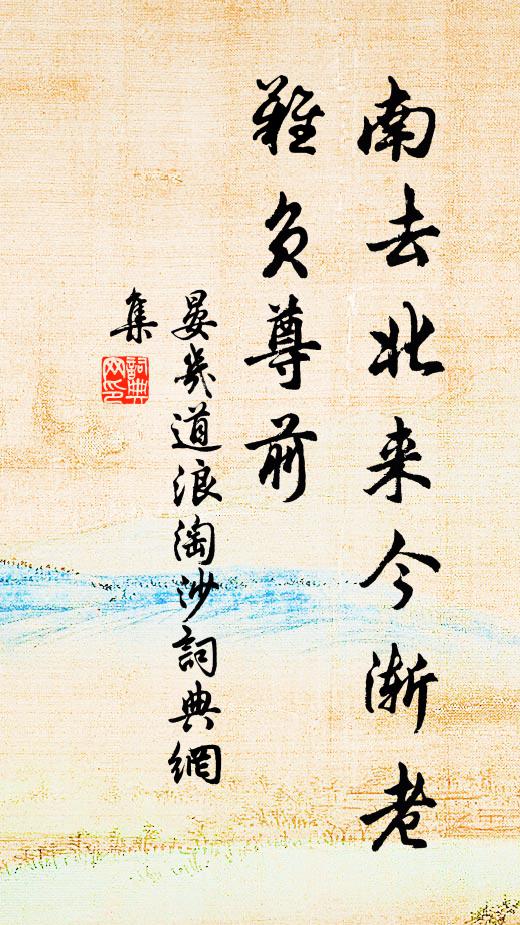 南去北来今渐老
難負尊前
晏幾道浪淘沙詞典網
集
詞典網印